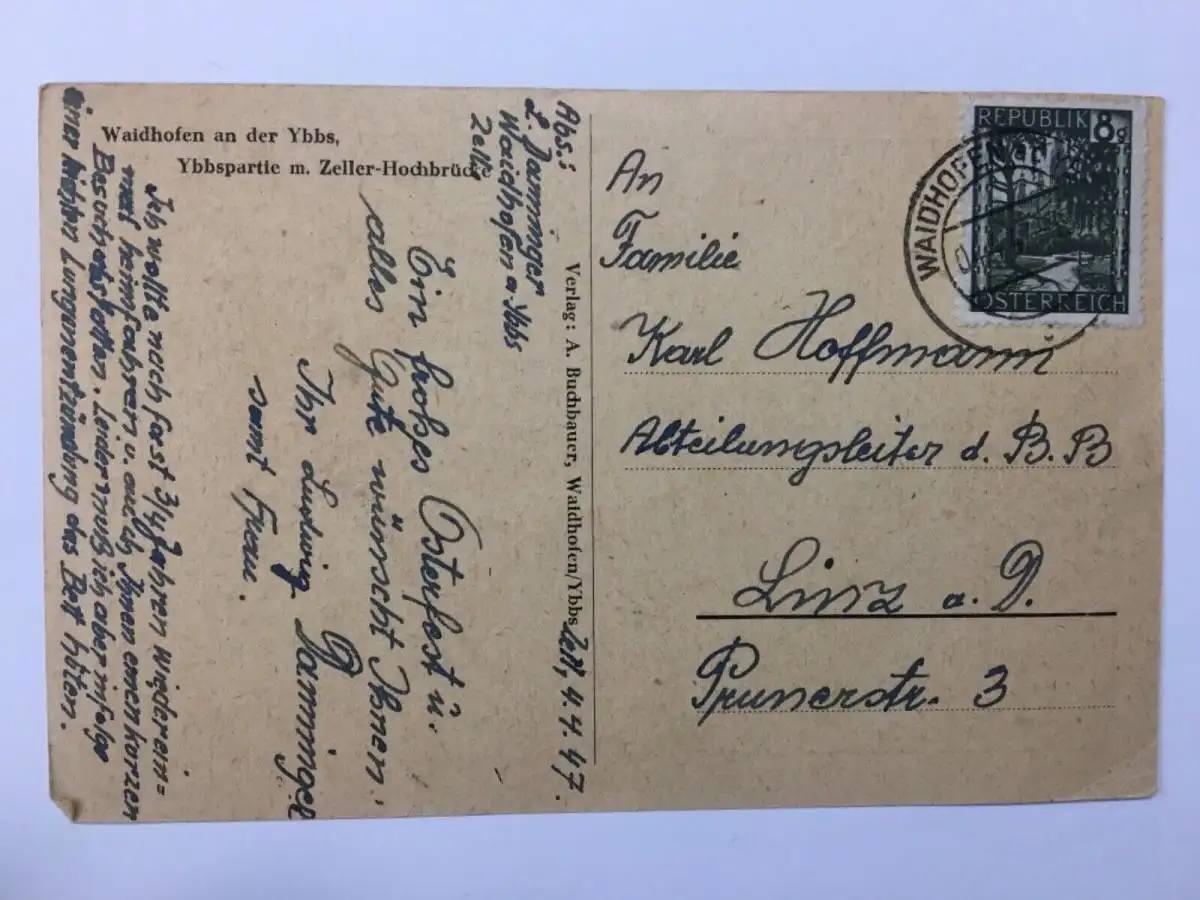 Waidhofen an der Ybbs,
Ybbspartie m. Zeller-Hochbrücke
Abs.:
L. Danninger
Waidhofen a. Ybbs
Zell
Zell, 4. 4. 47.
Ein frohes Osterfest u.
alles Gute wünscht Ihnen
Ihr Ludwig Danninger
samt Frau.
Ich wollte nach fast 3/4 Jahren wiedereinmal
heimfahren u. auch Ihnen einen kurzen
Besuch abstatten. Leider muß ich aber infolge
einer Lungenentzündung das Bett hüten.
Verlag: A. Buchbauer, Waidhofen/Ybbs
REPUBLIK 8g
ÖSTERREICH
WAIDHOFEN
An
Familie
Karl Hoffmann
Abteilungsleiter d. B. B
Linz a. D.
Prunerstr. 3